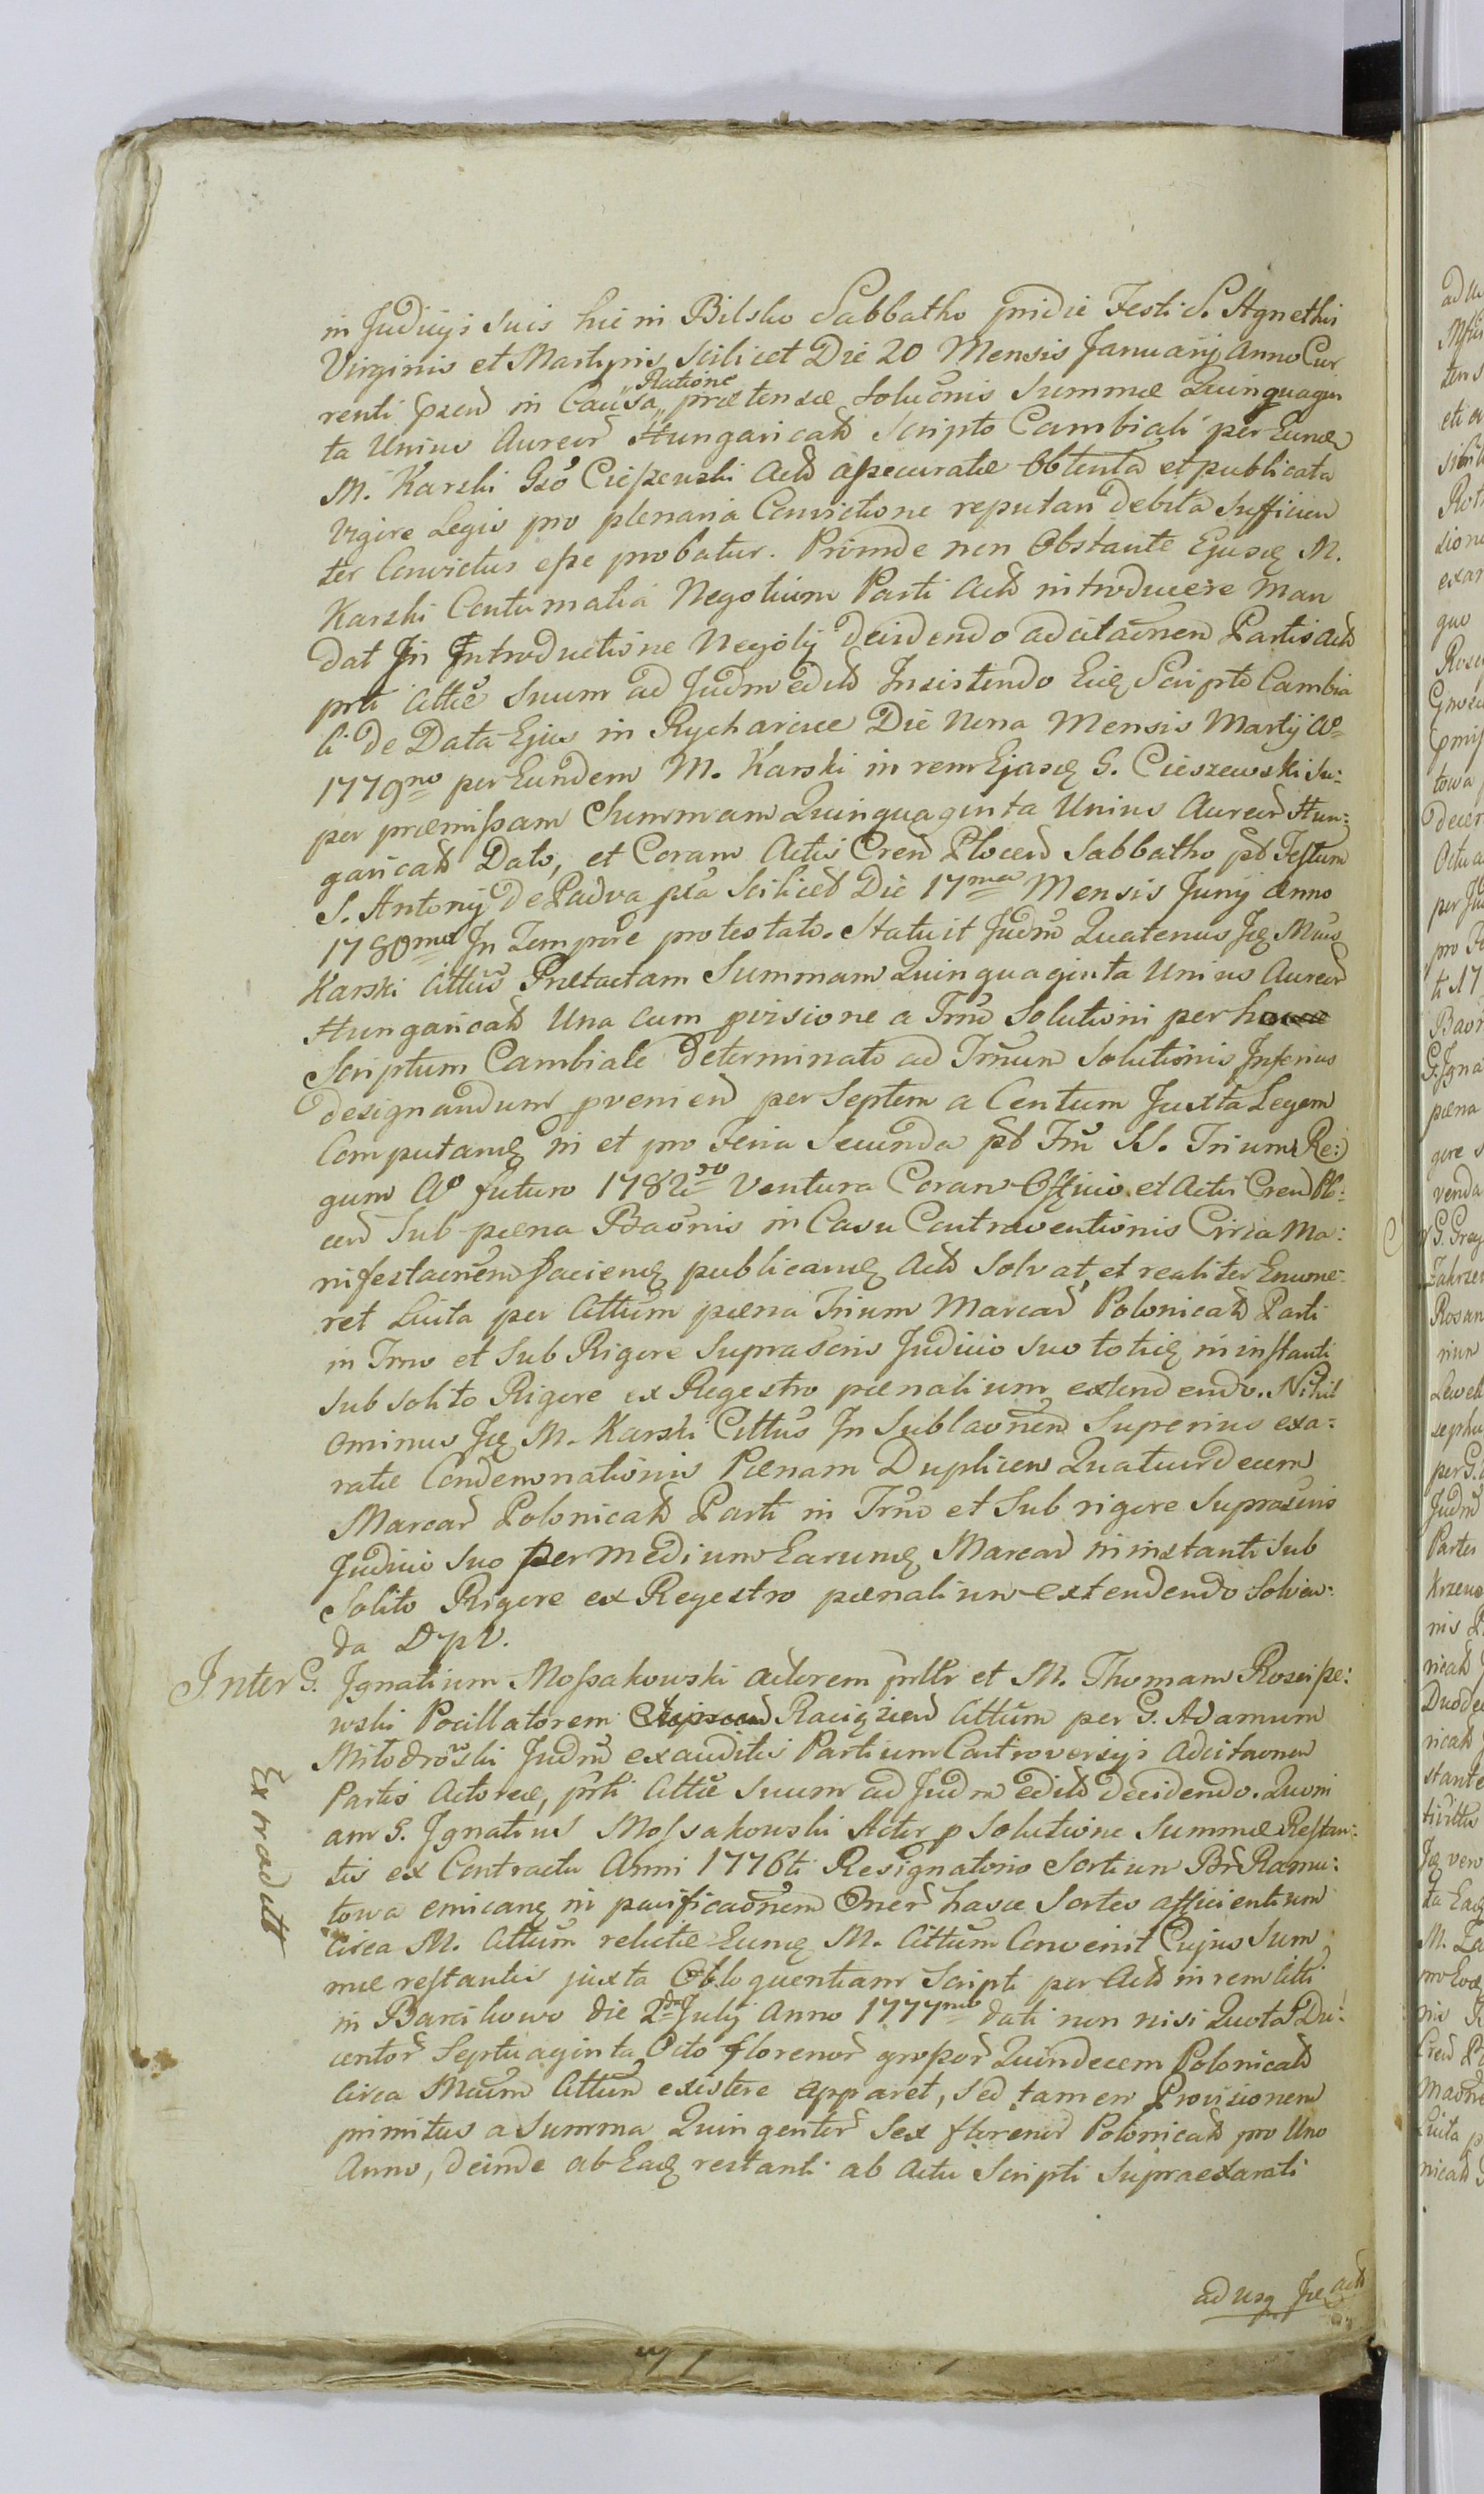 in Judicijs suis hic in Bilsko Sabbatho pridie Festi S. Agnethis
Virginis et Martyris scilicet Die 20 Mensis Januarij Anno Cur
renti in Causa „Ratione„ prætensæ Soluõnis Summæ Quinquagin
ta Unius Aureor Hungaricalt Scripto Cambiali per Eundę
M. Karski Gso Cieszewski Actt assecuratæ Obtenta et publicata
Vigore Legis pro plenaria Convictione reputañ debita Sufficien
ter Convictus esse probatur. Proinde non Obstante Ejusdę M.
Karski Contumatia Negotium Parti Actt introducere Man
dat In Introductione Negotij decidendo ad citaõnen Partis Actt
prti Cittæ Suum ad Judm editt Insistendo Eidę Scripto Cambia
li de Data Ejus in Rycharcice Die Nona Mensis Martij Aº
1779no per Eundem M. Karski in rem Ejusdę G. Cieszewski Su:
per præmissam Summam Quinquaginta Unius Aureor Hun:
garicalt Dato, et Coram Actis Cren Plocen Sabbatho pt Festum
S. Antonij de Padva pxa Scilicet Die 17ma Mensis Junij Anno
1780mo In Tempore protestato. Statuit Judm Quatenus Idę Mcus
Karski Cittus Prætactam Summam Quinquaginta Unius Aureor
Hungaricalt Una cum pvisione a Trno Solutioni per
Scriptum Cambiale determinato ad Trnum Solutionis Inferius
designandum pvenien per Septem a Centum Juxta Legem
Computandę in et pro Feria Secunda pt Fm SS. Trium Re:
gum Aº futuro 1782do Ventura Coram Officio et Actis Cren Plo:
cen Sub pæna Baõnis in Casu Contraventionis Circa Ma:
nifestaõnem faciendę publicandę Actt Solvat, et realiter Enume:
ret Luita per Cittum pæna Trium Marcar Polonicalt Parti
in Trno et Sub Rigore Suprascris Judicio suo totidę in instanti
sub solito Rigore ex Regestro pænalium extendendo. Nihil
ominus Idę M. Karski Cittus In Sublaõnem Superius exa:
ratæ Condemnationis Pænam Duplicem Quatuordecem
Marcar Polonicalt Parti in Trno et Sub rigore Suprascris
Judicio suo per medium Earumdę Marcar in instanti sub
Solito Rigore ex Regestro pænalium extendendo Solven:
da DpV.
Inter G. Ignatium Mossakowski Actorem prltr et M. Thomam Roscisze:
wski Pocillatorem Raciązien Cittum per G. Adamum
Miłodroski Judm exauditis Partium Controversijs Adcitaõnen
Partis Actoreæ, prti Cittæ Suum ad Judm editt decidendo. Quoni
am G. Ignatius Mossakowski Actor p Solutione Summæ Restan:
tis ex Contractu Anni 1776ti Resignatorio Sortium Br Ramu:
towa emicandę in pacificaõnem Oner hasce Sortes afficientium
Circa M. Cittum relictæ Eundę M. Cittum Convenit Cujus Sum
mæ restantis juxta Obloquentiam Scripti per Actt in rem Citti
in Barcikowo die 2da Julij Anno 1777mo dati non nisi Quota Du:
centor Septuaginta Octo florenor grossor Quindecem Polonicalt
Circa Mcum Cittum existere apparet, sed tamen Provisionem
primitus a Summa Quingentor Sex florenor Polonicalt pro Uno
Anno, deinde ab Eadę restanti ab Actu Scripti Supraexarati
ad usq Idę Actt
Extradtt